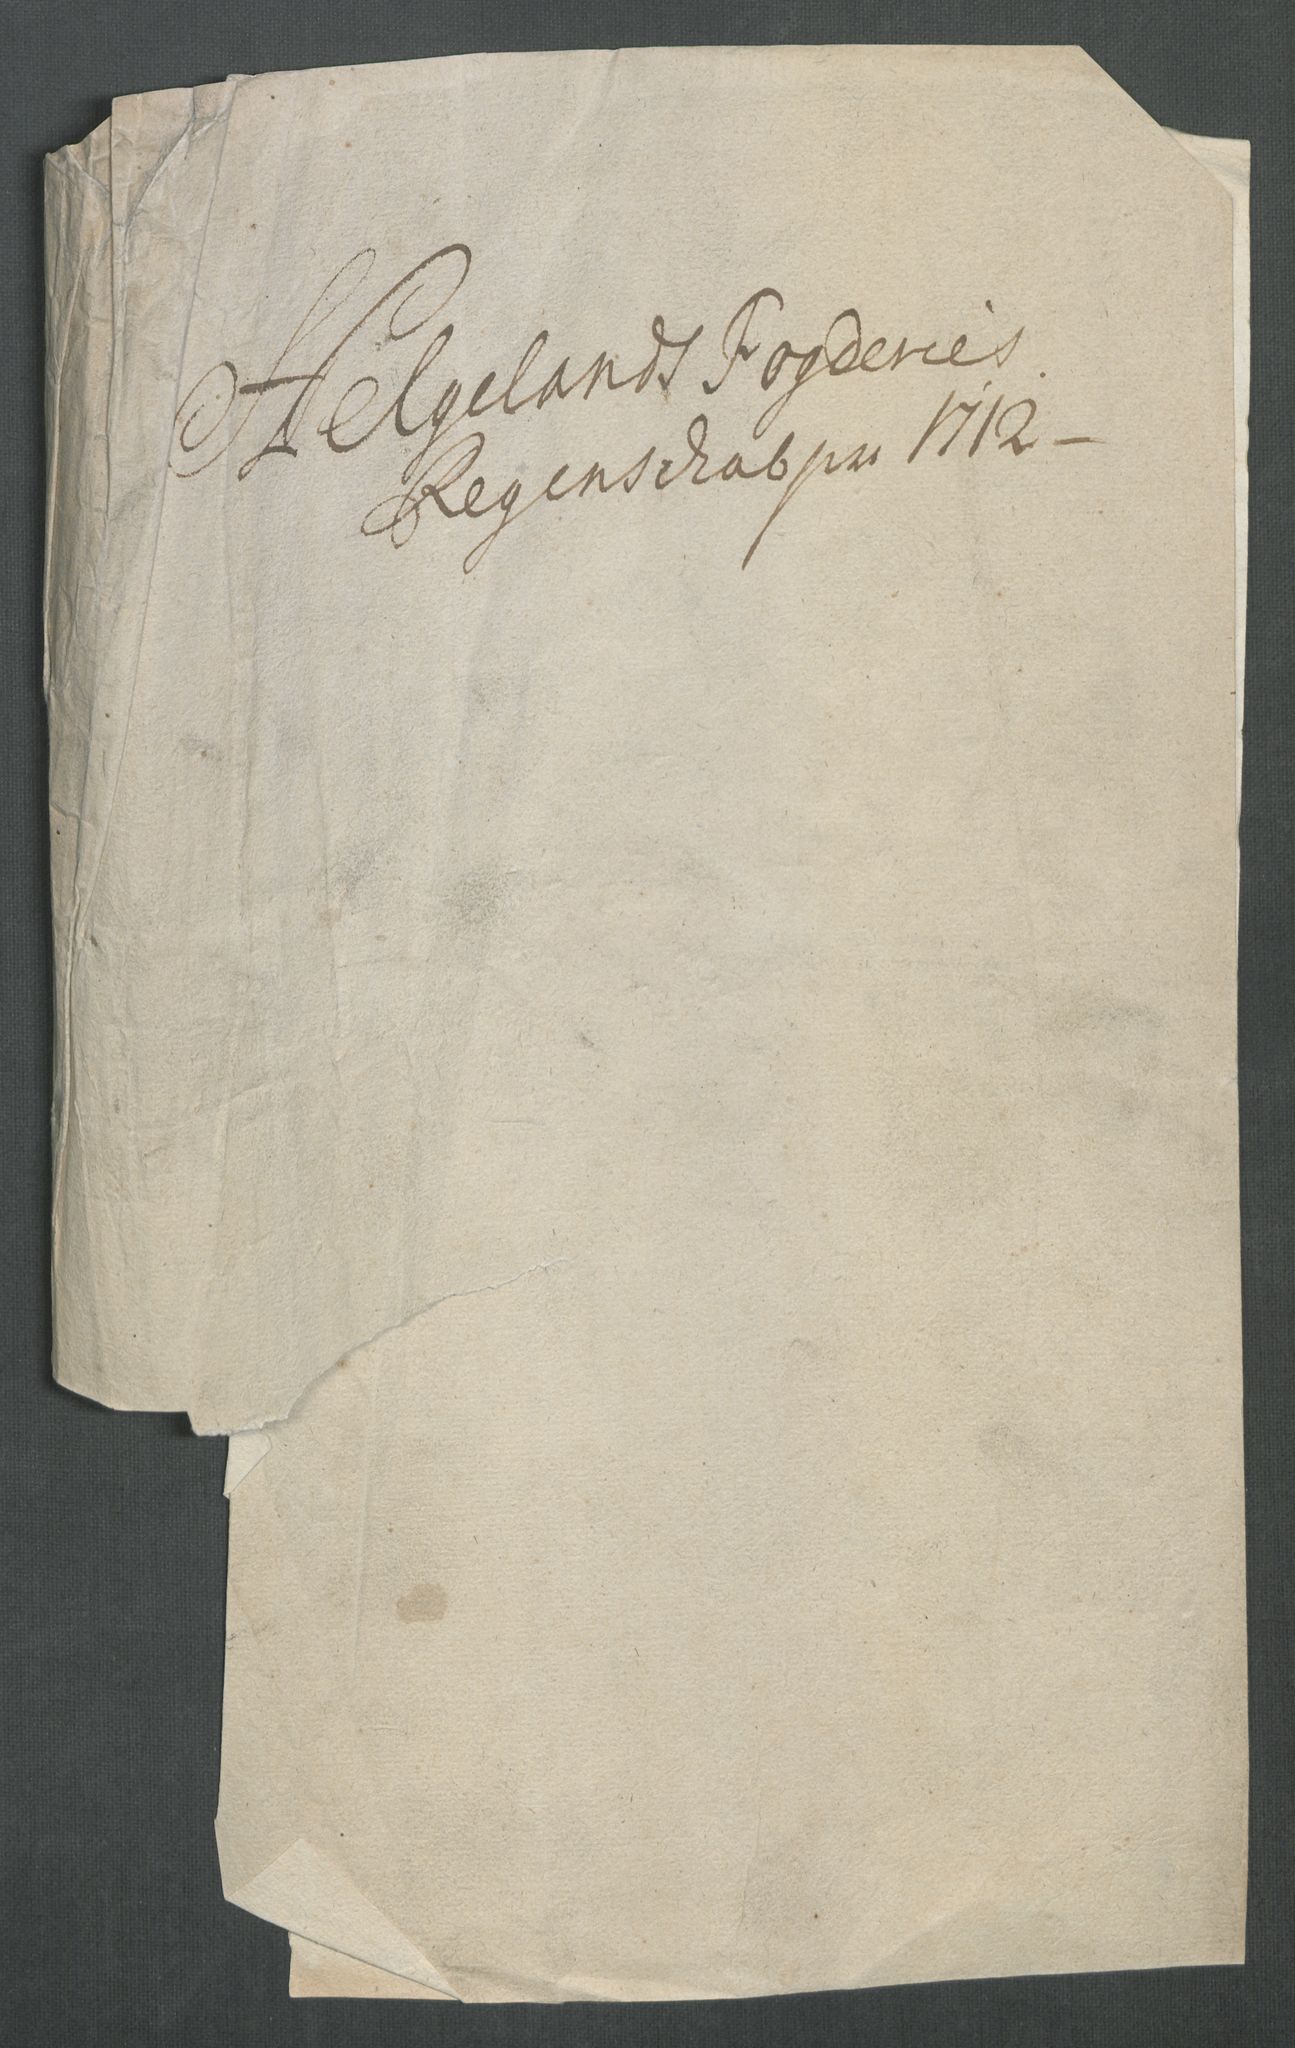 Helgelands Fogderies
Regenschab pro 1712 –